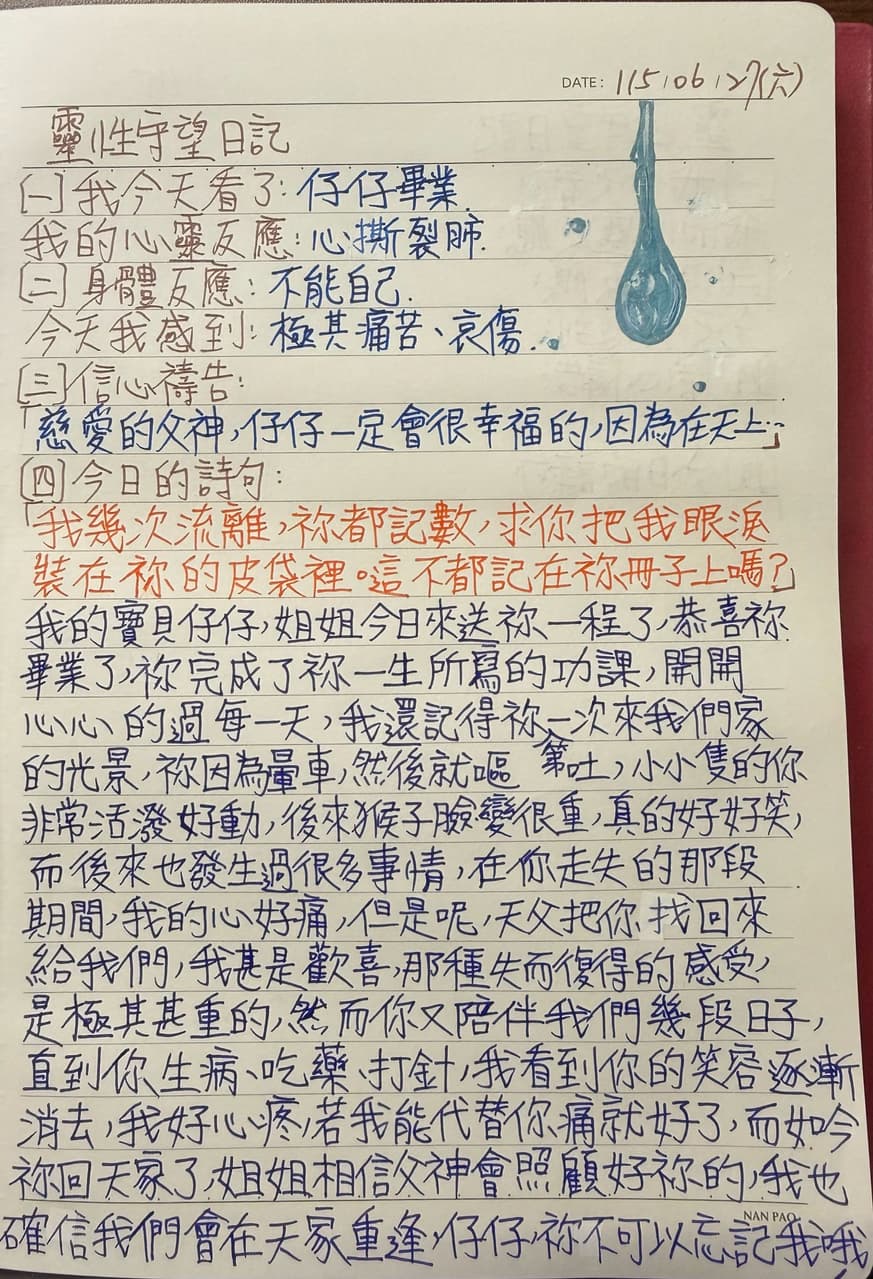 DATE: 115/06/27(六)
靈性守望日記
[一]我今天看了:仔仔畢業.
我的心靈反應:心撕裂肺.
[二]身體反應:不能自己.
今天我感到:極其痛苦、哀傷.
[三]信心禱告:
「慈愛的父神,仔仔一定會很幸福的,因為在天上…」
[四]今日的詩句:
「我幾次流離,祢都記數,求你把我眼淚
裝在祢的皮袋裡。這不都記在祢冊子上嗎?」
我的寶貝仔仔,姐姐今日來送祢一程了,恭喜祢
畢業了,祢完成了祢一生所寫的功課,開開
心心的過每一天,我還記得祢第一次來我們家
的光景,祢因為暈車,然後就嘔吐,小小隻的你
非常活潑好動,後來猴子臉變很重,真的好好笑,
而後來也發生過很多事情,在你走失的那段
期間,我的心好痛,但是呢,天父把你找回來
給我們,我甚是歡喜,那種失而復得的感受,
是極其甚重的,然而你又陪伴我們幾段日子,
直到你生病、吃藥、打針,我看到你的笑容逐漸
消去,我好心疼,若我能代替你痛就好了,而如今
祢回天家了,姐姐相信父神會照顧好祢的,我也
NAN PAO
確信我們會在天家重逢,仔仔,祢不可以忘記我哦!